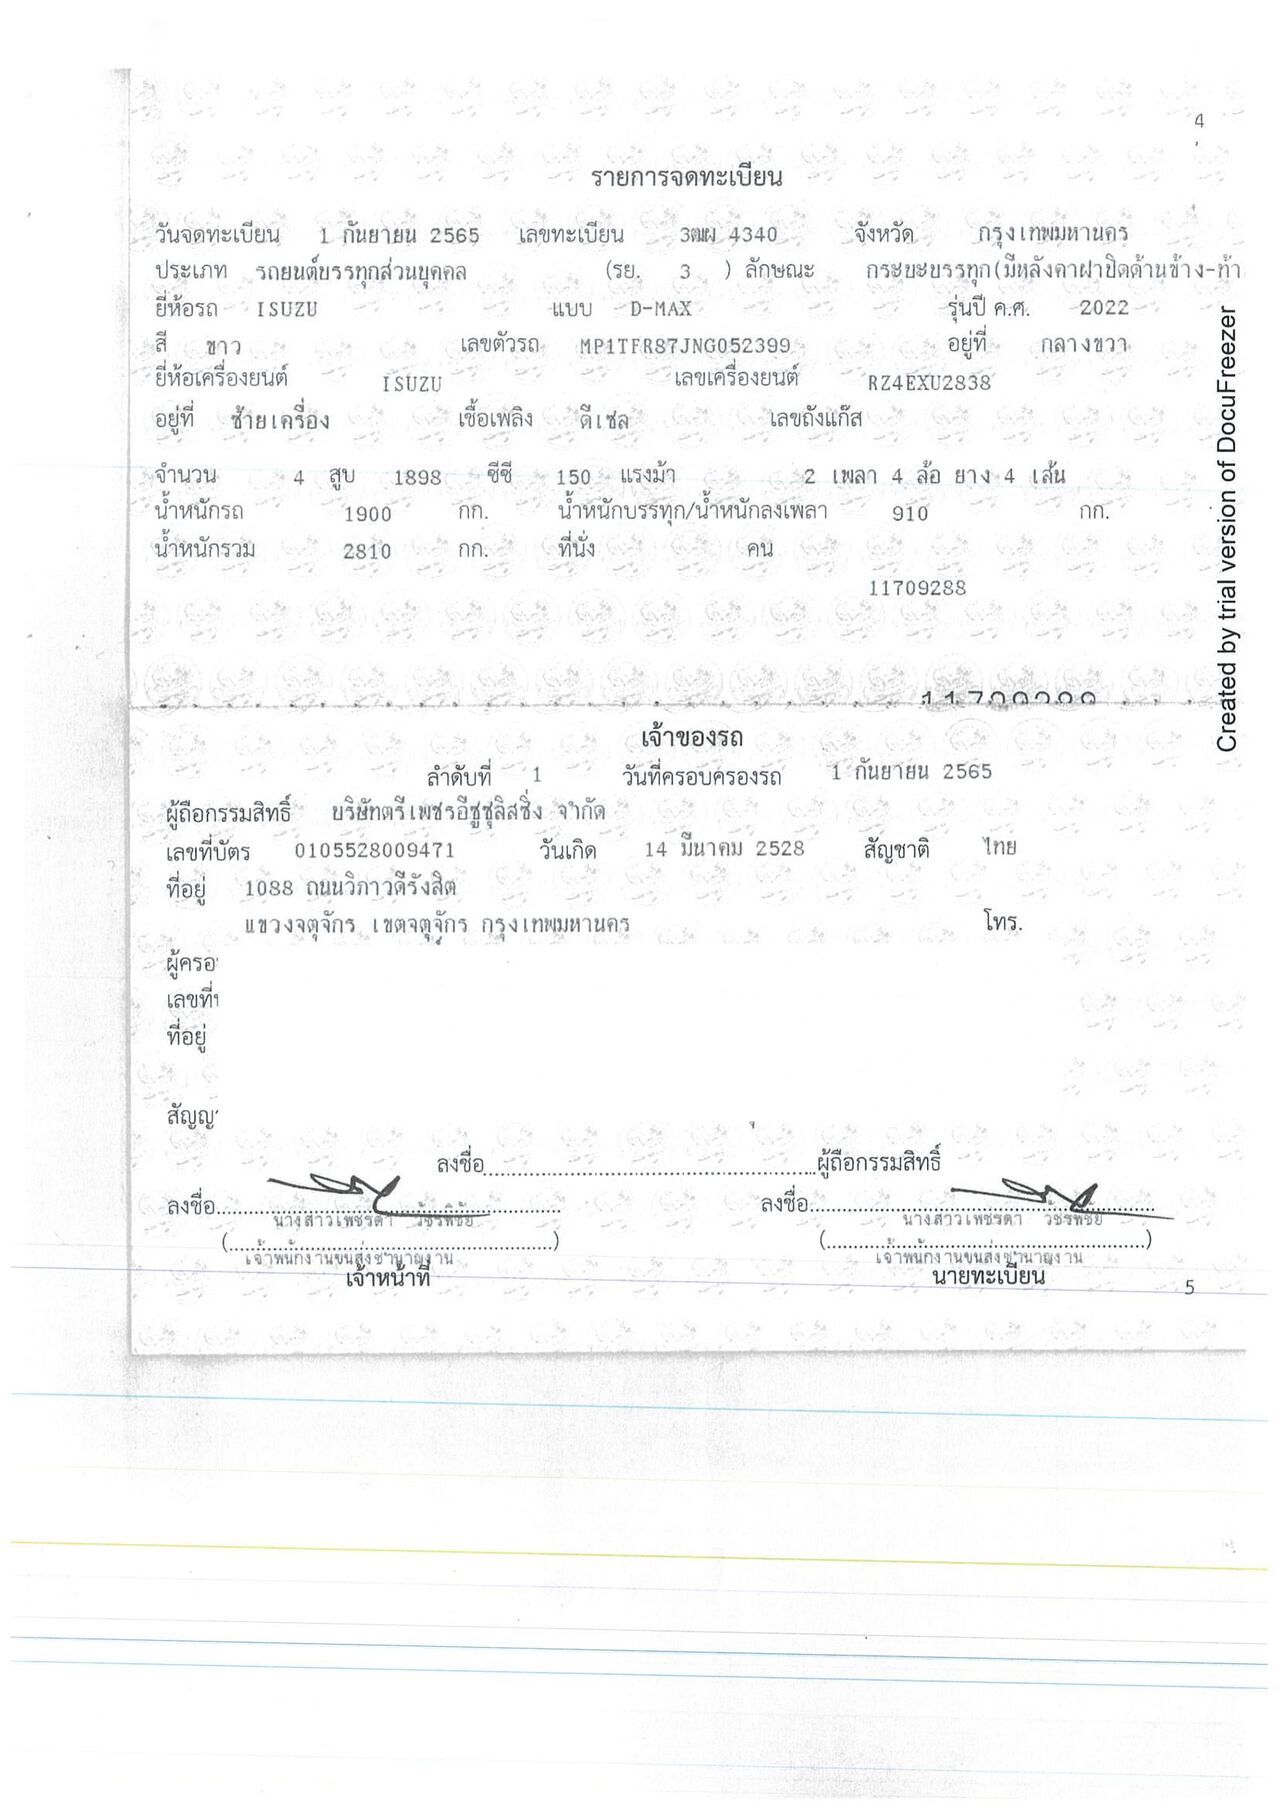 4
รายการจดทะเบียน
วันจดทะเบียน 1 กันยายน 2565 เลขทะเบียน 3ฒผ 4340 จังหวัด กรุงเทพมหานคร
ประเภท รถยนต์บรรทุกส่วนบุคคล (รย. 3 ) ลักษณะ กระบะบรรทุก(มีหลังคาฝาปิดด้านข้าง-ท้า
ยี่ห้อรถ ISUZU แบบ D-MAX รุ่นปี ค.ศ. 2022
สี ขาว เลขตัวรถ MP1TFR87JNG052399 อยู่ที่ กลางขวา
ยี่ห้อเครื่องยนต์ ISUZU เลขเครื่องยนต์ RZ4EXU2838
อยู่ที่ ซ้ายเครื่อง เชื้อเพลิง ดีเซล เลขถังแก๊ส
จำนวน 4 สูบ 1898 ซีซี 150 แรงม้า 2 เพลา 4 ล้อ ยาง 4 เส้น
น้ำหนักรถ 1900 กก. น้ำหนักบรรทุก/น้ำหนักลงเพลา 910 กก.
น้ำหนักรวม 2810 กก. ที่นั่ง คน
11709288
เจ้าของรถ
ลำดับที่ 1 วันที่ครอบครองรถ 1 กันยายน 2565
ผู้ถือกรรมสิทธิ์ บริษัทตรีเพชรอีซูซุลิสซิ่ง จำกัด
เลขที่บัตร 0105528009471 วันเกิด 14 มีนาคม 2528 สัญชาติ ไทย
ที่อยู่ 1088 ถนนวิภาวดีรังสิต
แขวงจตุจักร เขตจตุจักร กรุงเทพมหานคร โทร.
ผู้ครอ
เลขที่
ที่อยู่
สัญญ
ลงชื่อ ผู้ถือกรรมสิทธิ์
ลงชื่อ ลงชื่อ
นางสาวเพชรดา วัชรพิชัย นางสาวเพชรดา วัชรพิชัย
(...) (...)
เจ้าพนักงานขนส่งชำนาญงาน เจ้าพนักงานขนส่งชำนาญงาน
เจ้าหน้าที่ นายทะเบียน
5
Created by trial version of DocuFreezer